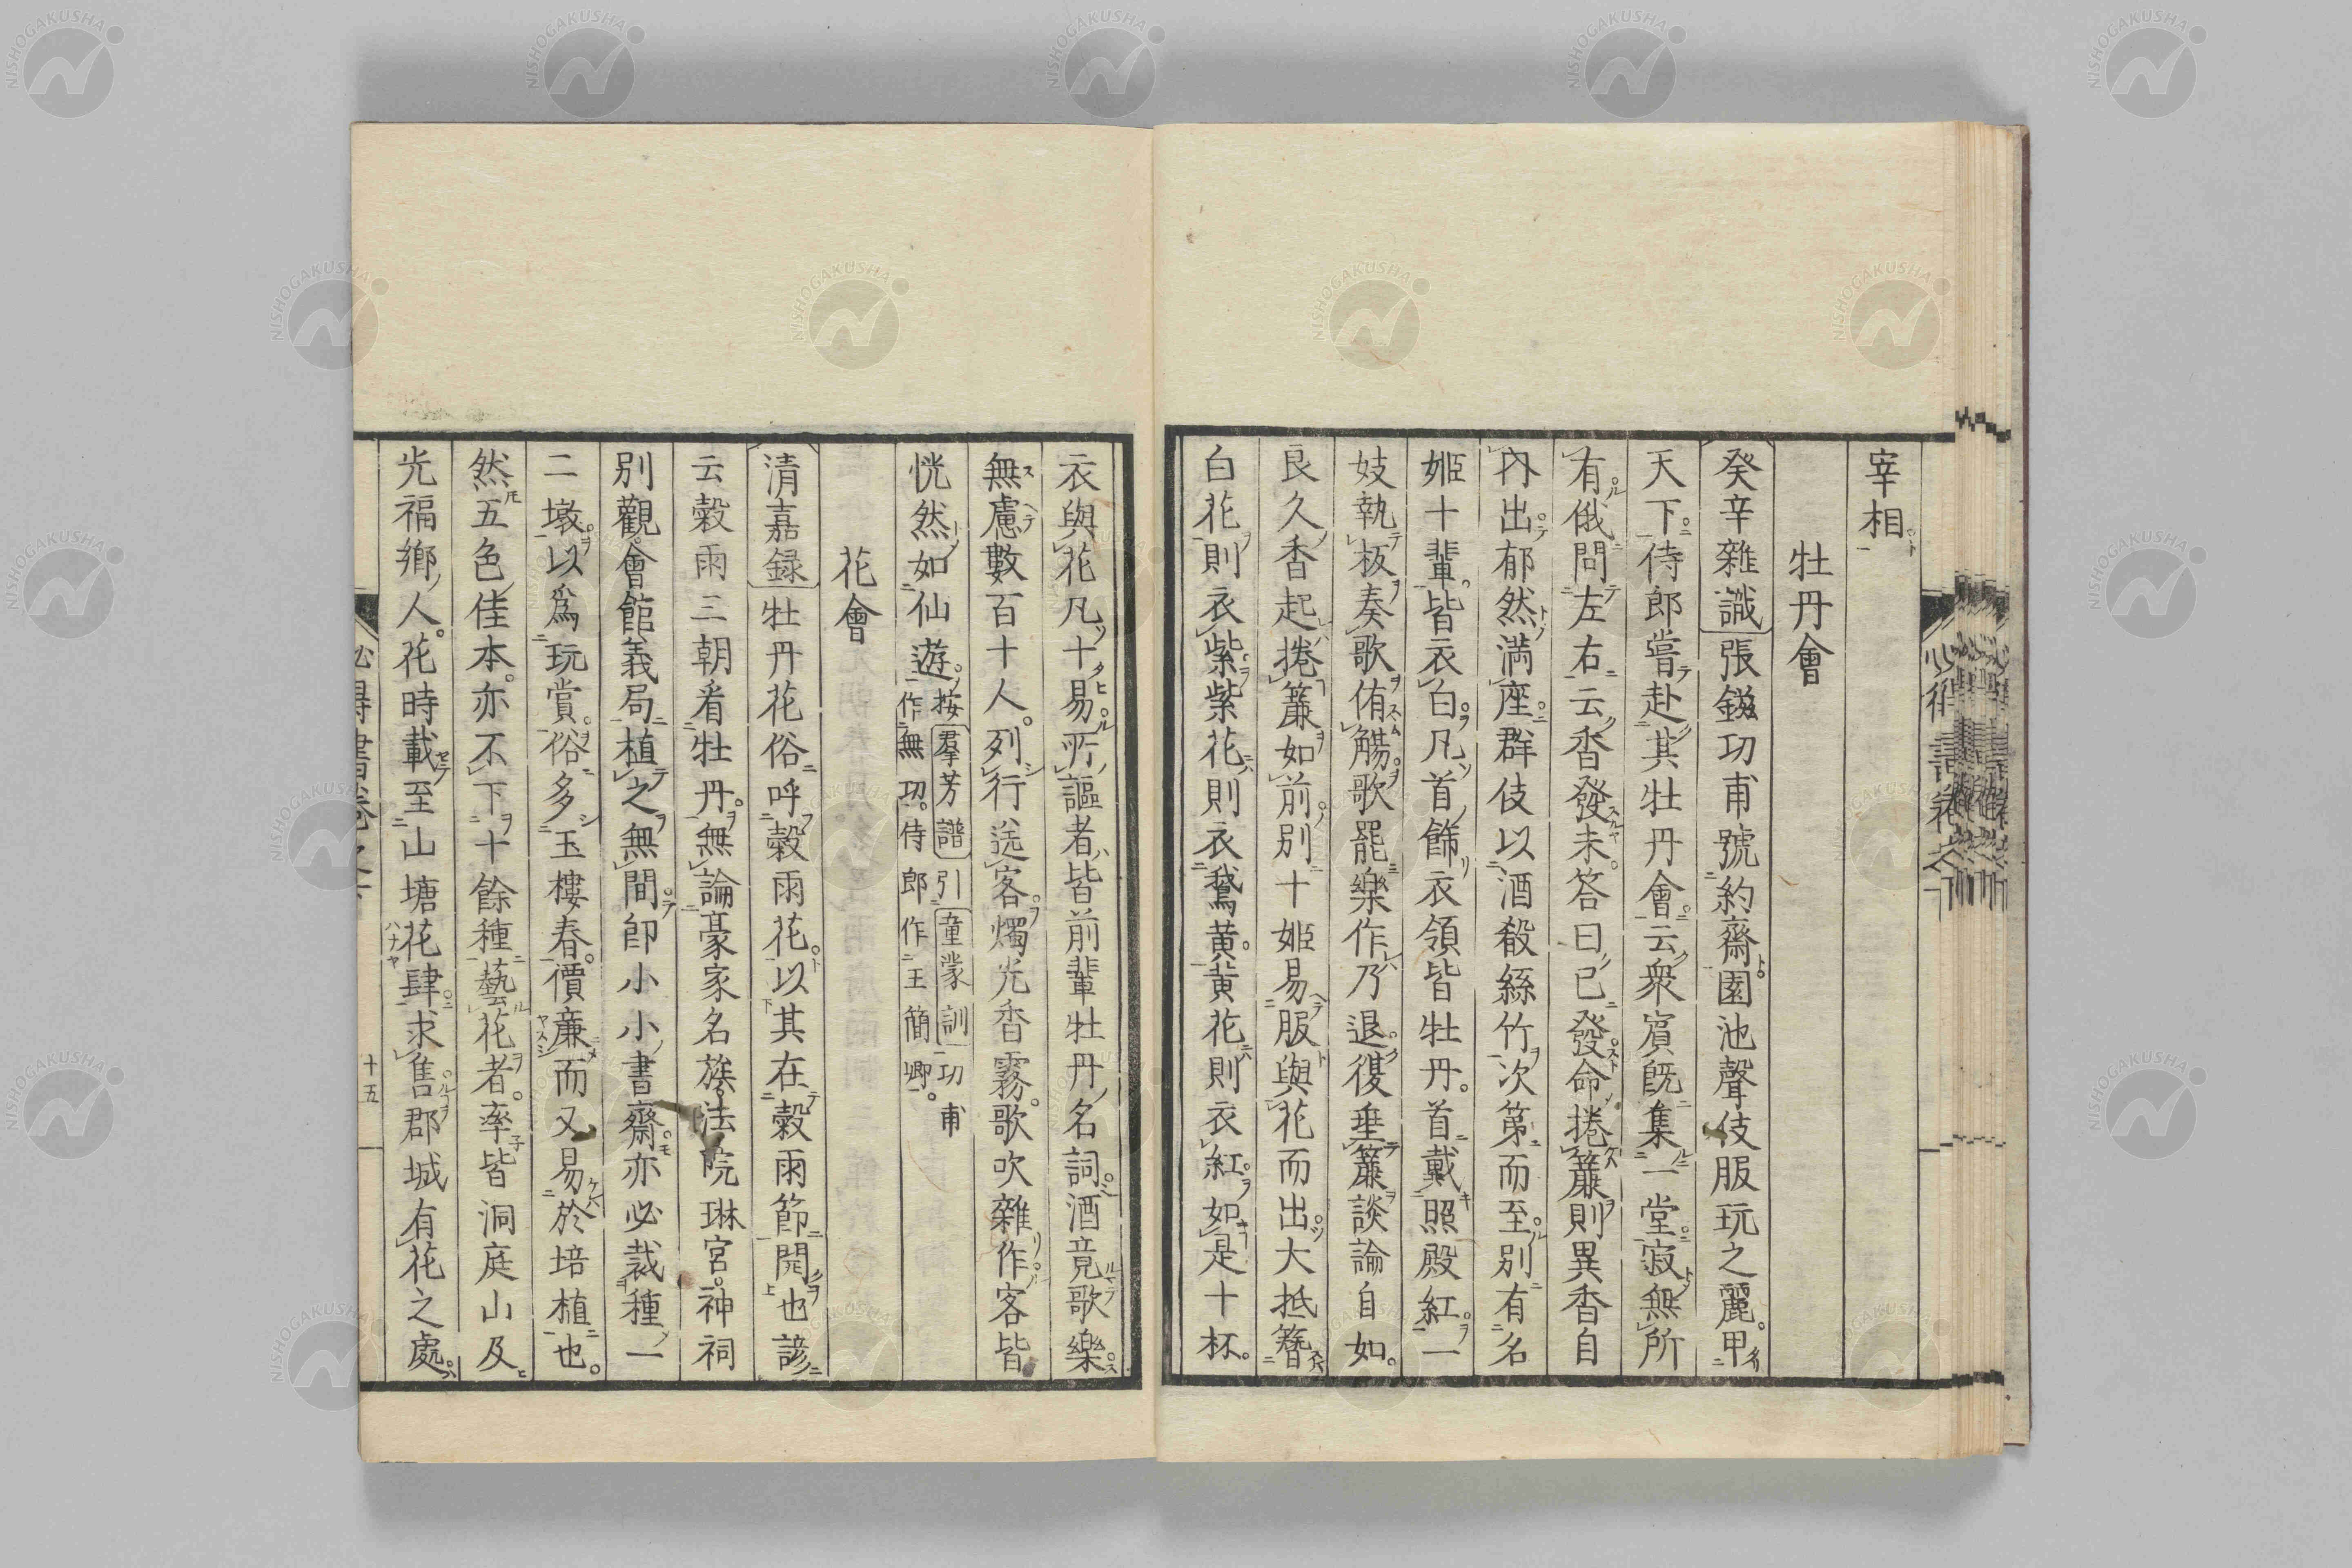 宰相
牡丹會
癸辛雜識張鎡功甫號約齋園池聲伎服玩之麗甲
天下侍郎嘗赴其牡丹會云衆賓既集一堂寂無所
有俄問左右云香發未答曰已發命捲簾則異香自
內出郁然滿座群伎以酒殽絲竹次第而至別有名
姬十輩皆衣白凡首飾衣領皆牡丹首戴照殿紅一
妓執板奏歌侑觴歌罷樂作乃退復垂簾談論自如
良久香起捲簾如前別十姬易服與花而出大抵簪
白花則衣紫紫花則衣鵞黃黃花則衣紅如是十杯
衣與花凡十易所謳者皆前輩牡丹名詞酒竟歌樂
無慮數百十人列行送客燭光香霧歌吹雜作客皆
恍然如仙遊按羣芳譜引童蒙訓功甫
作無功侍郎作王簡卿
花會
清嘉録牡丹花俗呼穀雨花以其在穀雨節開也諺
云穀雨三朝看牡丹無論豪家名族法院琳宮神祠
別觀會館義局植之無間卽小小書齋亦必裁種一
二墩以爲玩賞俗多玉樓春價廉而又易於培植也
然五色佳本亦不下十餘種藝花者率皆洞庭山及
光福鄉人花時載至山塘花肆求售郡城有花之處
十五
NISHOGAKUSHA